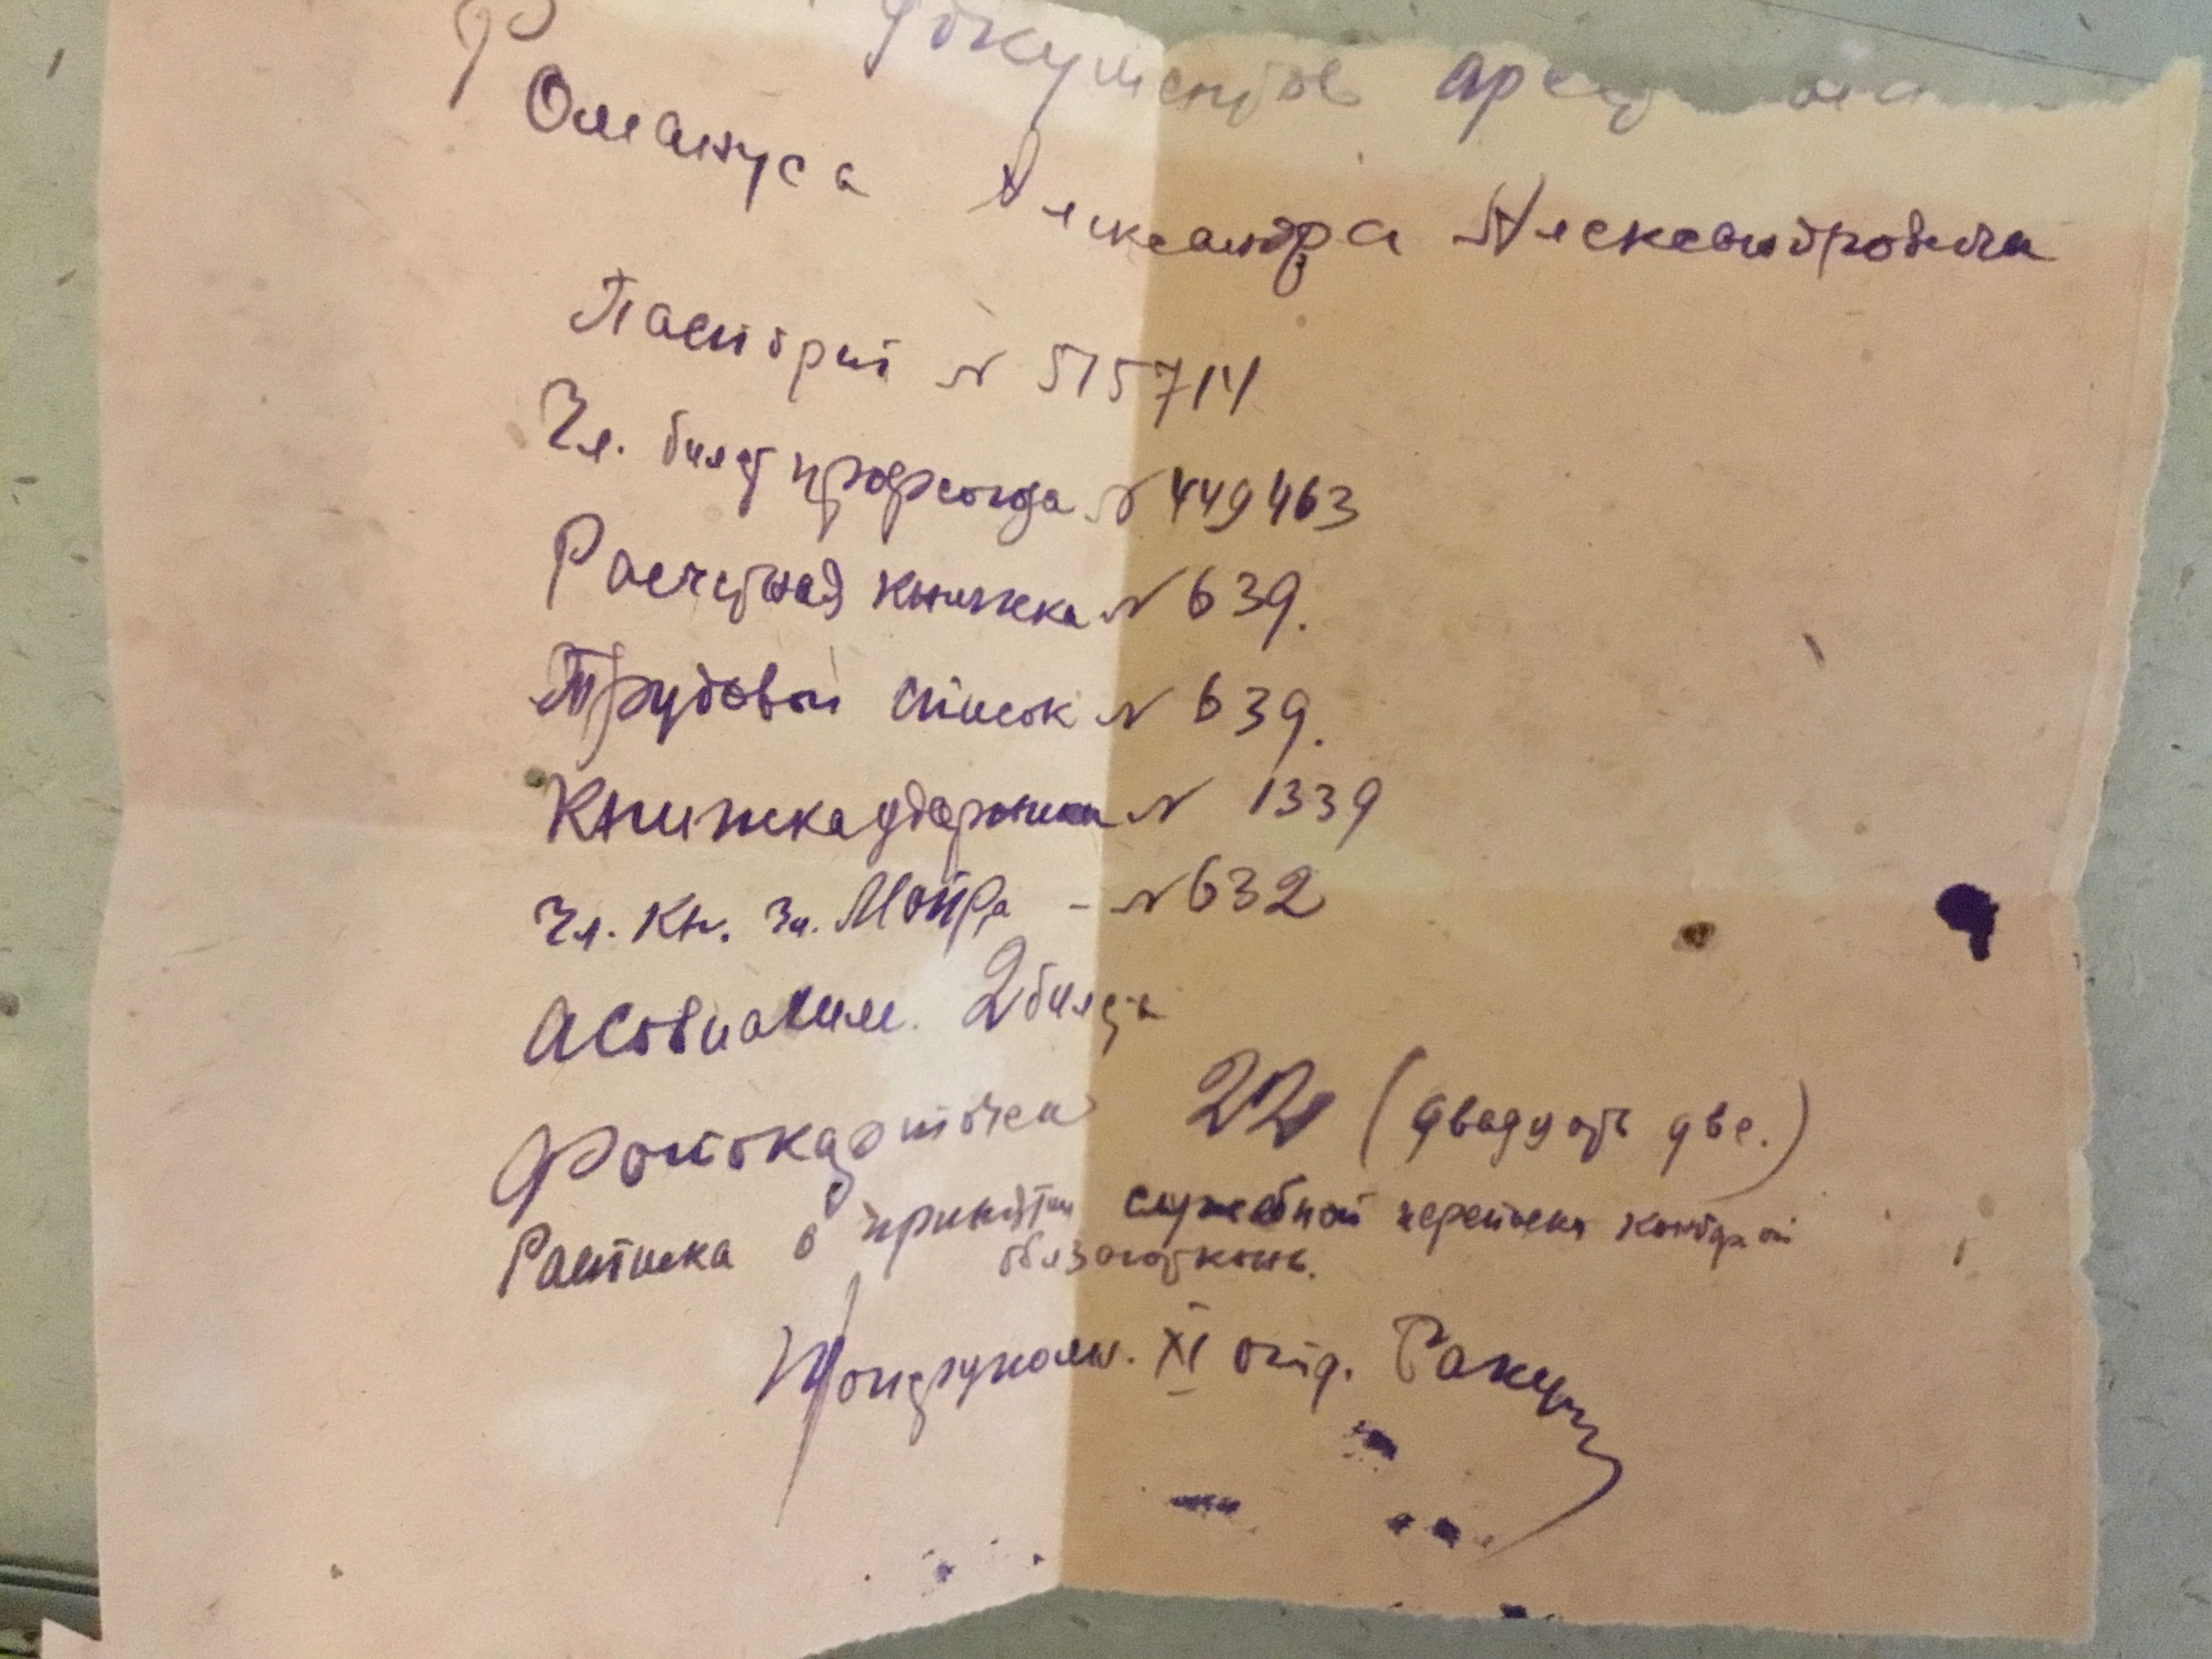 документов
Романуса Александра Александровича
Паспорт № 515714
Чл. билет профсоюза № 449463
Расчетная книжка № 639.
Трудовой список № 639.
Книжка ударника № 1339
Чл. кн. За. Мопра - № 632
Асовиахим. 2 билета
Фотокарточек 22 (двадцать две.)
Расписка о принятии служебной переписки
обязательств.
XI отд.